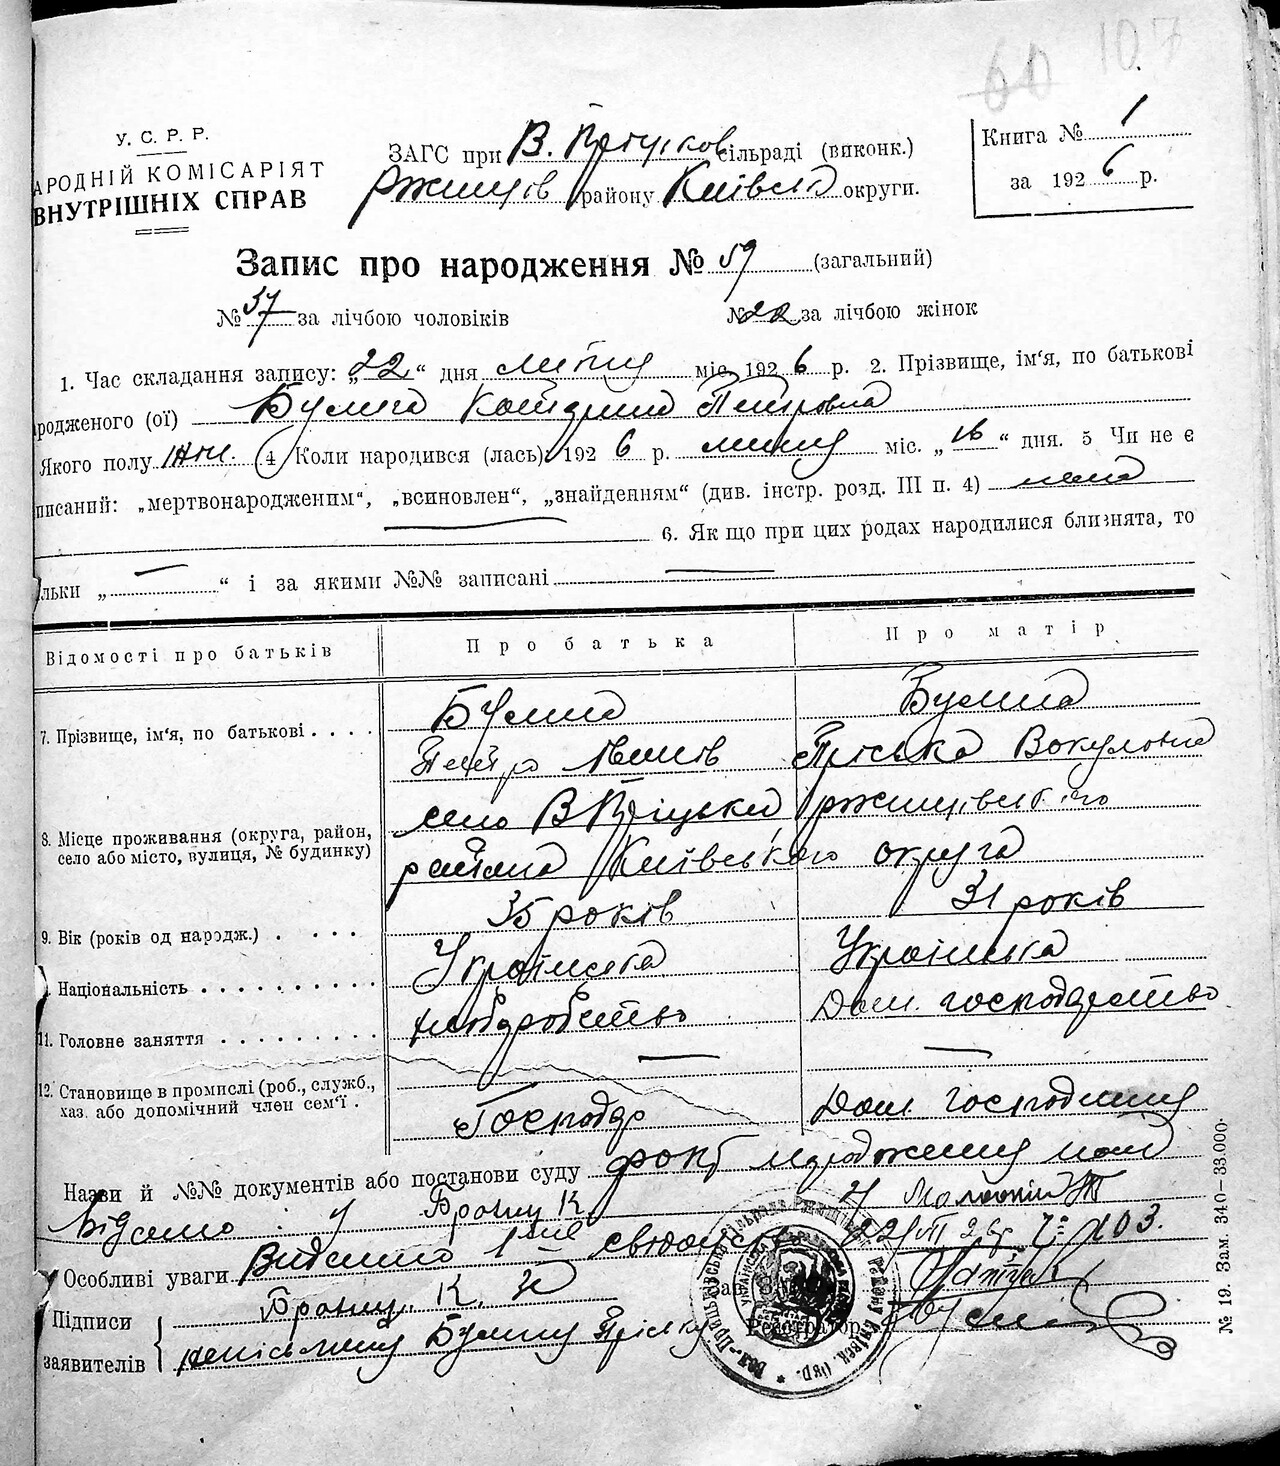 60 107
У. С. Р. Р.
АРОДНІЙ КОМІСАРІЯТ
ВНУТРІШНІХ СПРАВ
ЗАГС при В. Пріцьков сільраді (виконк.)
Ржищів району Київська округи.
Книга № 1
за 1926 р.
Запис про народження № 59 (загальний)
№ 37 за лічбою чоловіків № 22 за лічбою жінок
1. Час складання запису: „22“ дня липня міс. 1926 р. 2. Прізвище, ім'я, по батькові
родженого (ої) Булига Катерина Петровна
Якого полу жін. 4 Коли народився (лась) 1926 р. липня міс. „16“ дня. 5 Чи не є
писаний: „мертвонародженим“, „всиновлен“, „знайденням“ (див. інстр. розд. III п. 4) нема
6. Як що при цих родах народилися близнята, то
льки „ “ і за якими №№ записані
Відомості про батьків Про батька Про матір
7. Прізвище, ім'я, по батькові . . . . Булига Булига
Петро Іванів Пріська Вокуловна
8. Місце проживання (округа, район, село В Пріцьки Ржищівського
село або місто, вулиця, № будинку) района Київського округа
9. Вік (років од народж.) . . . . 35 років 31 років
Національність . . . . . . . . . . Українська Українська
11. Головне заняття . . . . . . . . . хліборобство Дом. господарство
12. Становище в промислі (роб., служб.,
хаз. або допомічний член сем'ї . Господар Дом. господиня
Назви й №№ документів або постанови суду факт народження
Відомо
Особливі уваги Видано свідоцтво 103.
Підписи
заявителів неписьменну Булигу Пріську
Реєстратор
№ 19. Зам. 340—33.000.